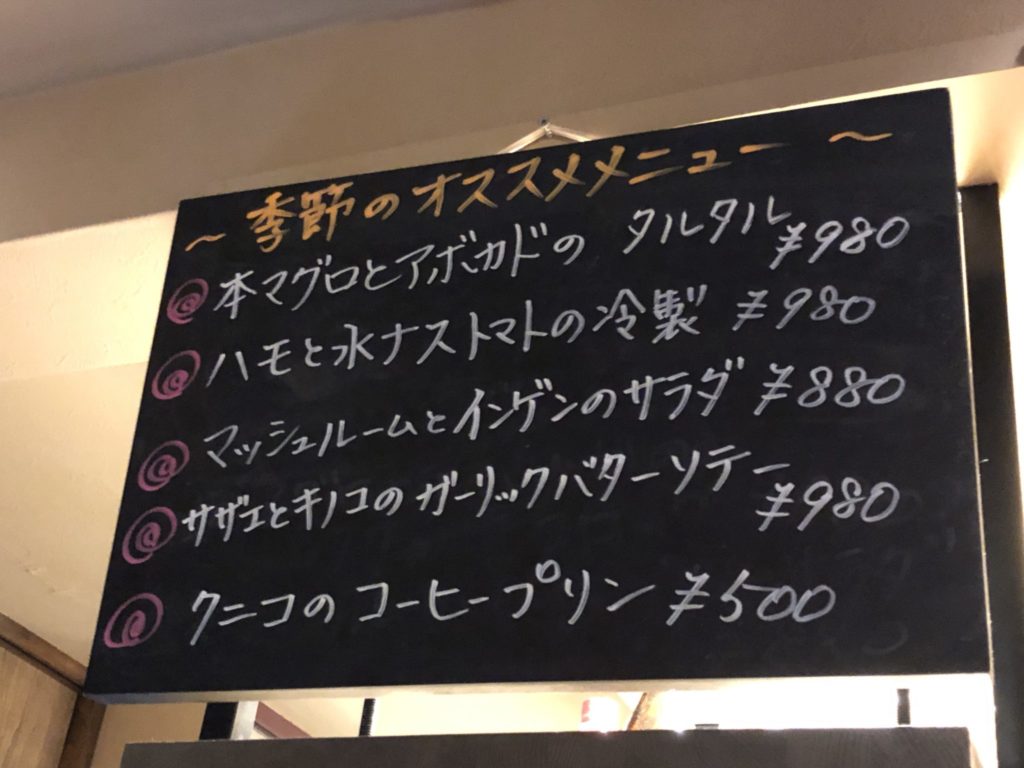 ～季節のオススメメニュー～
本マグロとアボカドの タルタル ¥980
ハモと水ナストマトの冷製 ¥980
マッシュルームとインゲンのサラダ ¥880
サザエとキノコのガーリックバターソテー ¥980
クニコのコーヒープリン ¥500